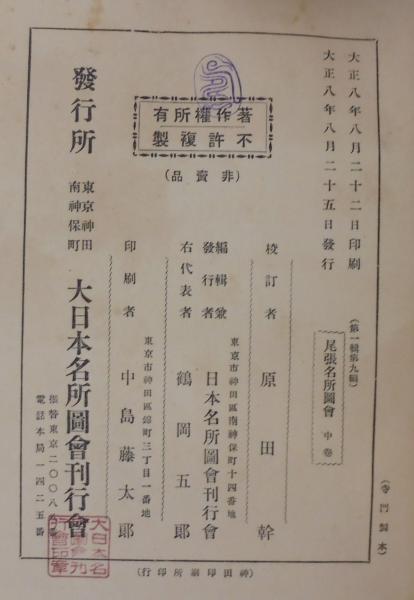 大正八年八月二十二日印刷
大正八年八月二十五日發行
著作權所有
不許複製
(非賣品)
(第一輯第九編)
尾張名所圖會 中卷
校訂者 原田幹
東京市神田區南神保町十四番地
編輯兼發行者 日本名所圖會刊行會
右代表者 鶴岡五郎
東京市神田區錦町三丁目一番地
印刷者 中島藤太郎
發行所
東京神田
南神保町
大日本名所圖會刊行會
振替東京二〇〇八
電話本局一四二五番
(神田印刷所印行)
(寺門製本)
大日本名
行會印章